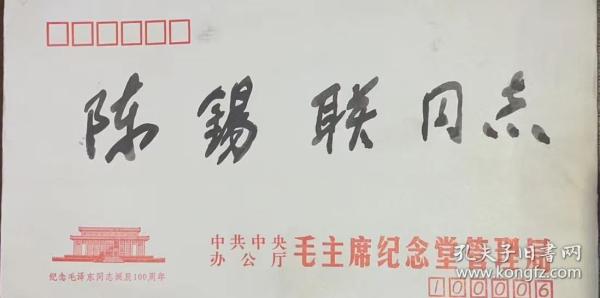 陈锡联同志
中共中央
办公厅
毛主席纪念堂管理局
纪念毛泽东同志诞辰100周年
100006
孔夫子旧书网
www.kongfz.com